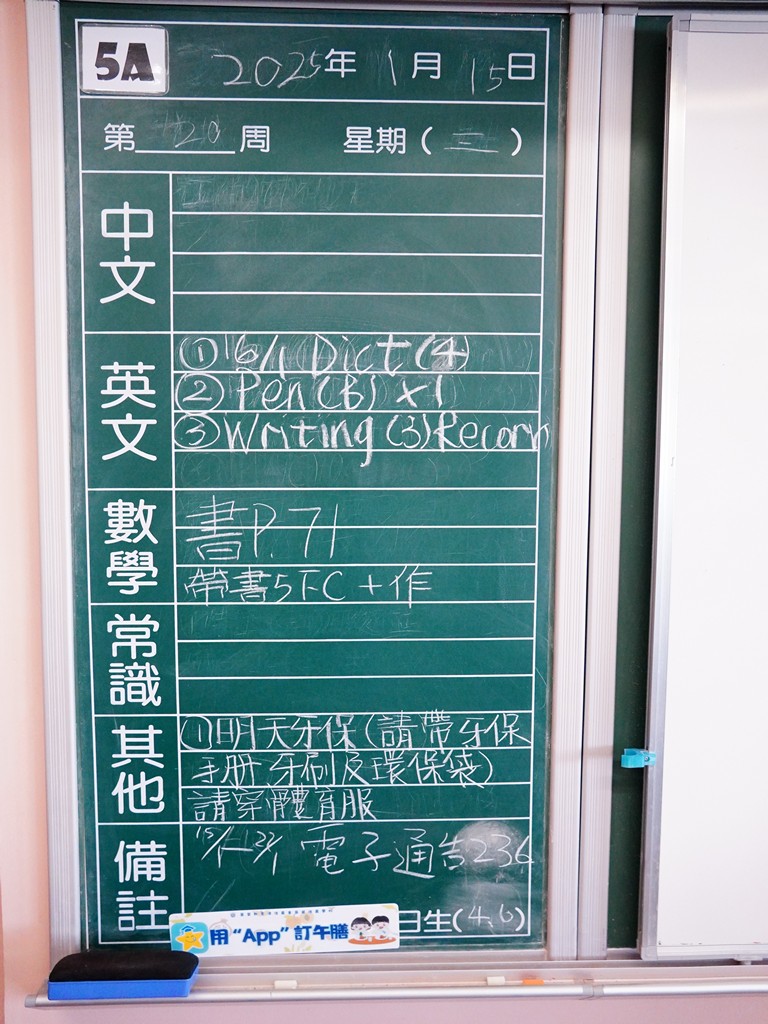 5A 2025年 1月 15日
第 20 周 星期（三）
中文
英文
① 16/1 Dict(4)
② Pen(B) x1
③ Writing(3)Recorr
數學
書P.71
帶書5下C + 作
常識
其他
①明天牙保(請帶牙保
手册,牙刷及環保袋)
請穿體育服
備註
15/1-22/1 電子通告236
日生(4,6)
用 “App” 訂午膳